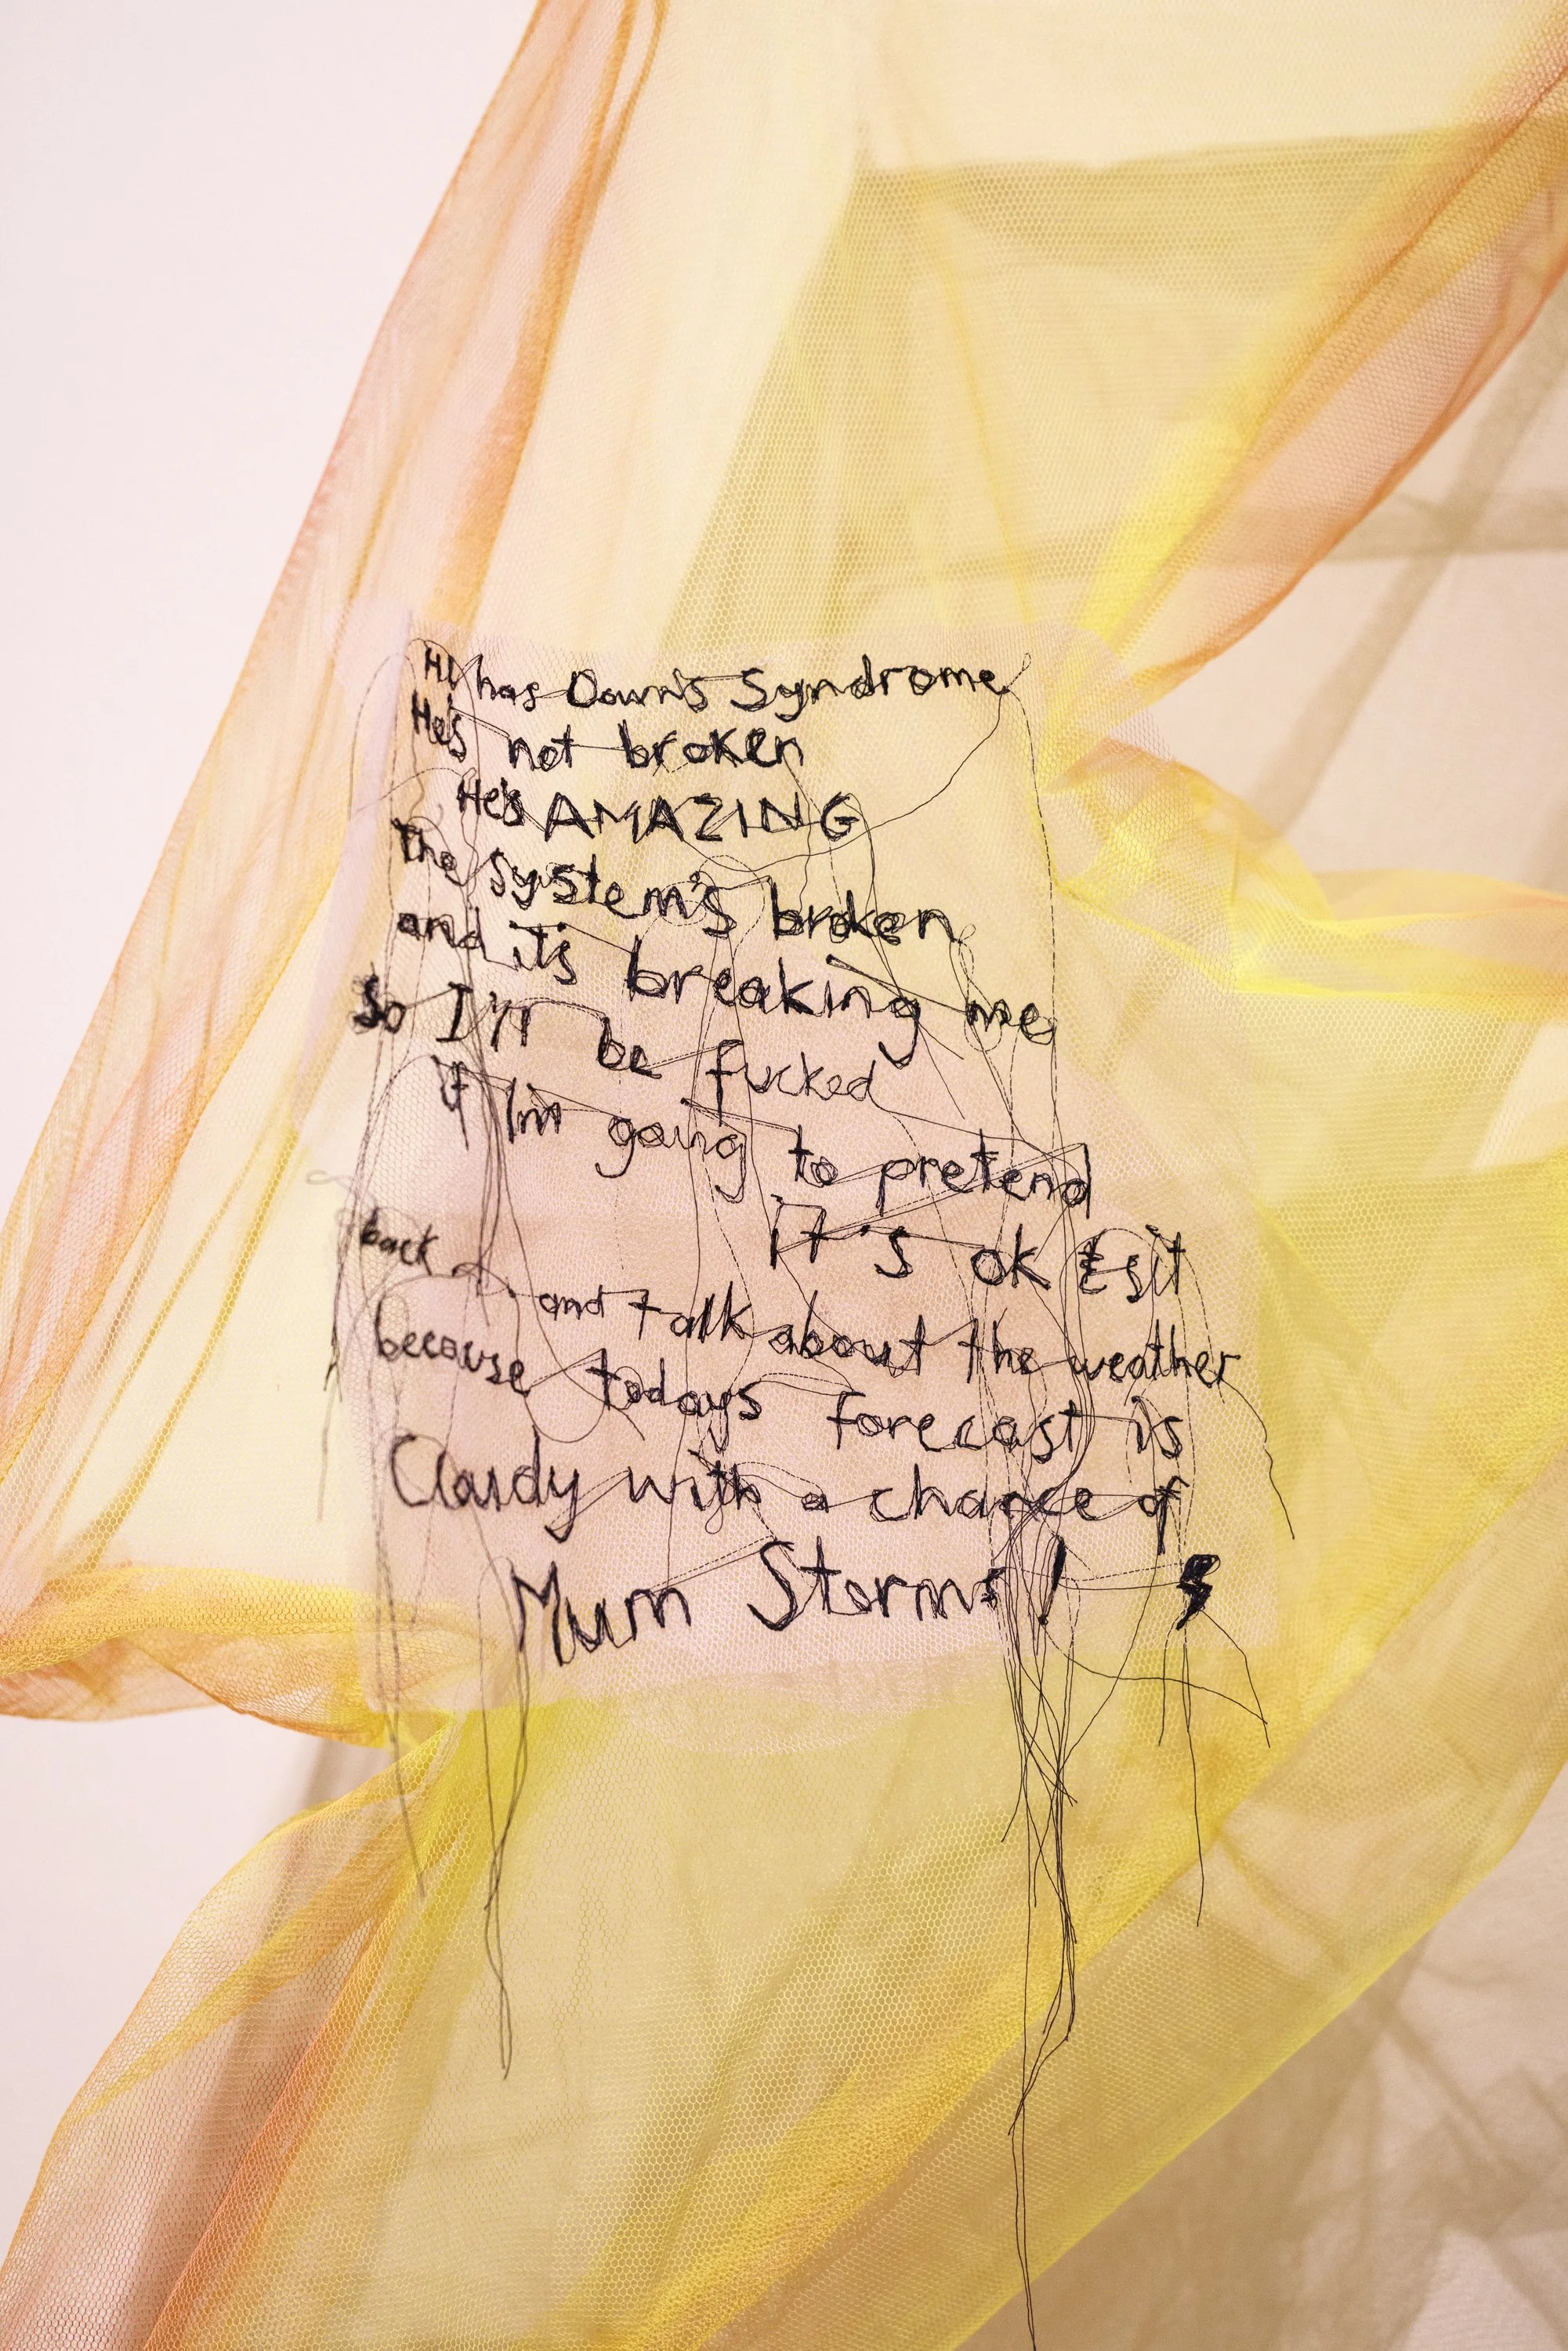 Hi has Down's Syndrome
He's not broken
He's AMAZING
The System's broken
and its breaking me
So I'll be fucked
if Im going to pretend
it's ok & sit
back and talk about the weather
because todays forecast is
Cloudy with a chance of
Mum Storms!